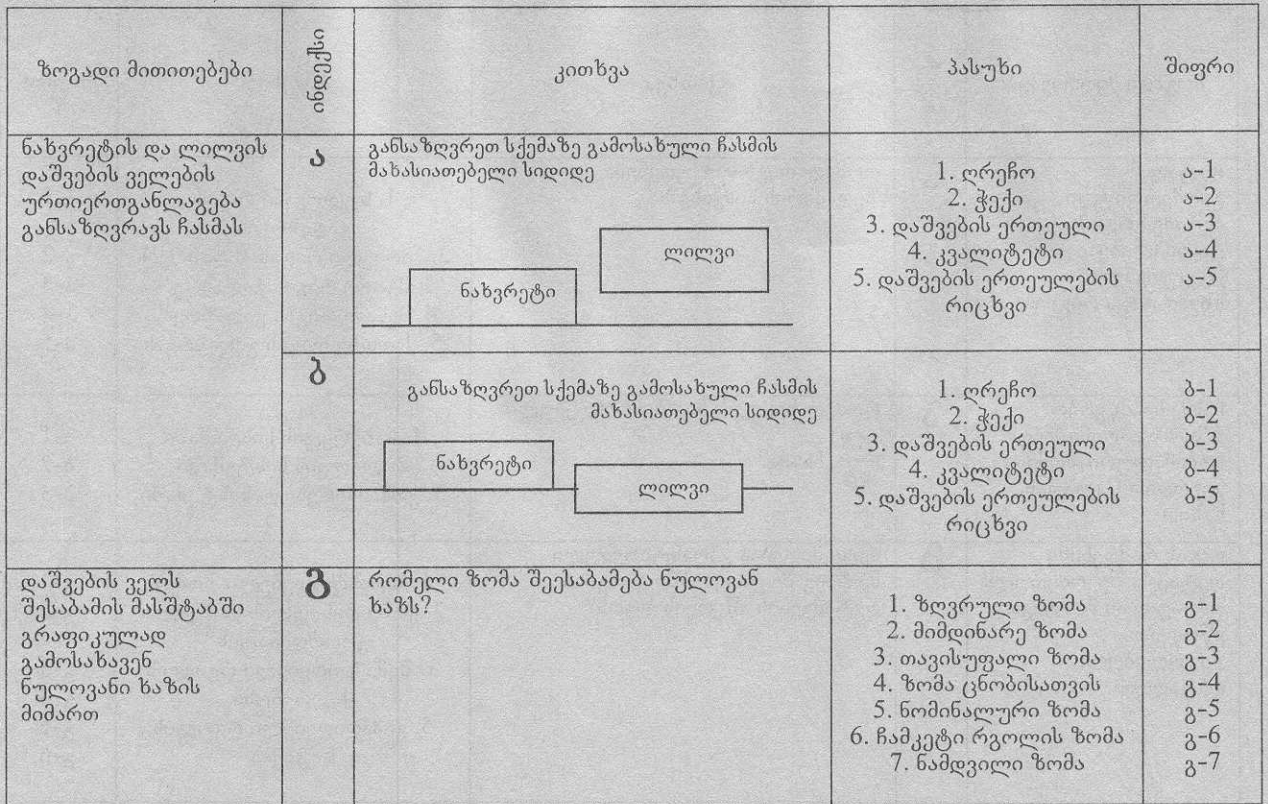 ზოგადი მითითებები
ინდექსი
კითხვა
პასუხი
შიფრი
ნახვრეტის და ლილვის
დაშვების ველების
ურთიერთგანლაგება
განსაზღვრავს ჩასმას
ა
განსაზღვრეთ სქემაზე გამოსახული ჩასმის
მახასიათებელი სიდიდე
ნახვრეტი
ლილვი
1. ღრეჩო
2. ჭექი
3. დაშვების ერთეული
4. კვალიტეტი
5. დაშვების ერთეულების
რიცხვი
ა-1
ა-2
ა-3
ა-4
ა-5
ბ
განსაზღვრეთ სქემაზე გამოსახული ჩასმის
მახასიათებელი სიდიდე
ნახვრეტი
ლილვი
1. ღრეჩო
2. ჭექი
3. დაშვების ერთეული
4. კვალიტეტი
5. დაშვების ერთეულების
რიცხვი
ბ-1
ბ-2
ბ-3
ბ-4
ბ-5
დაშვების ველს
შესაბამის მასშტაბში
გრაფიკულად
გამოსახავენ
ნულოვანი ხაზის
მიმართ
გ
რომელი ზომა შეესაბამება ნულოვან
ხაზს?
1. ზღვრული ზომა
2. მიმდინარე ზომა
3. თავისუფალი ზომა
4. ზომა ცნობისათვის
5. ნომინალური ზომა
6. ჩამკეტი რგოლის ზომა
7. ნამდვილი ზომა
გ-1
გ-2
გ-3
გ-4
გ-5
გ-6
გ-7